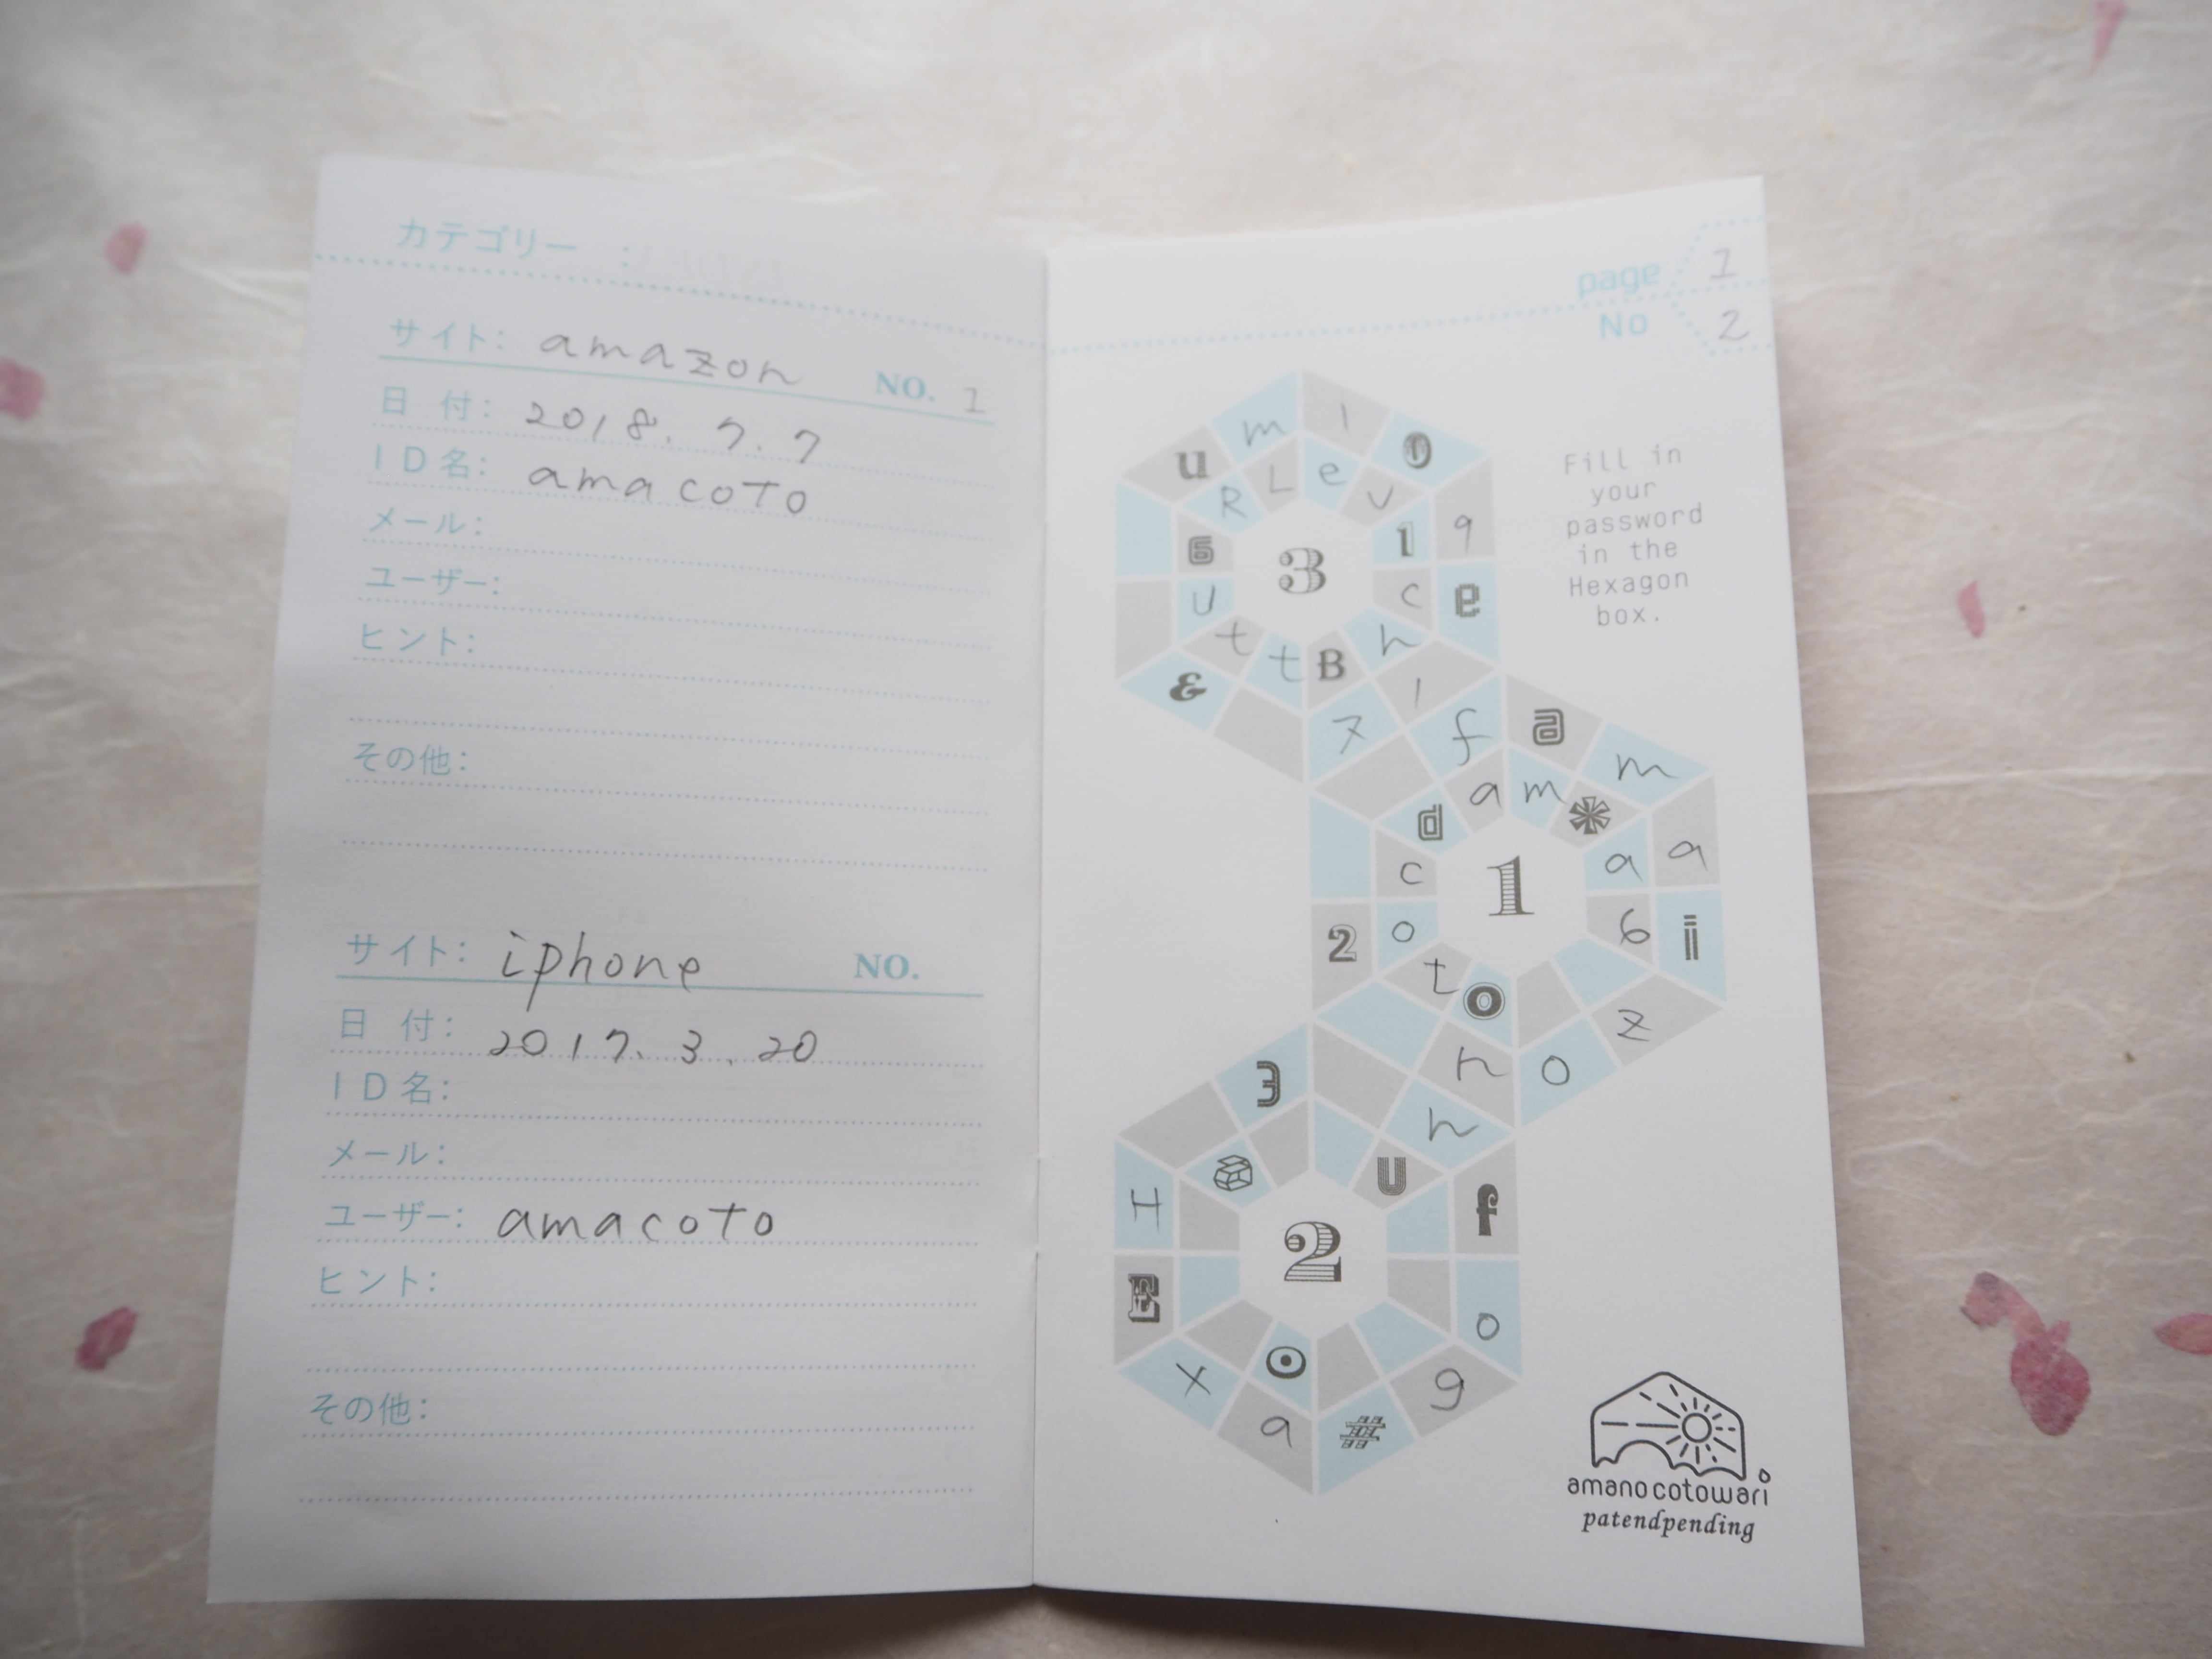 カテゴリー :
サイト: amazon NO. 1
日 付: 2018. 7. 7
ID名: amacoto
メール:
ユーザー:
ヒント:
その他:
サイト: iphone NO.
日 付: 2017. 3. 20
ID名:
メール:
ユーザー: amacoto
ヒント:
その他:
page 1
No 2
Fill in
your
password
in the
Hexagon
box.
u m l
R L e v
6 3 1 9
U c e
t t B h
& 7 l f a m
d a m *
c 1 a a
2 o 6 i
t o z
n o
3 h
a U f
H
E 2 o
x o g
a #
amanocotowari
patendpending